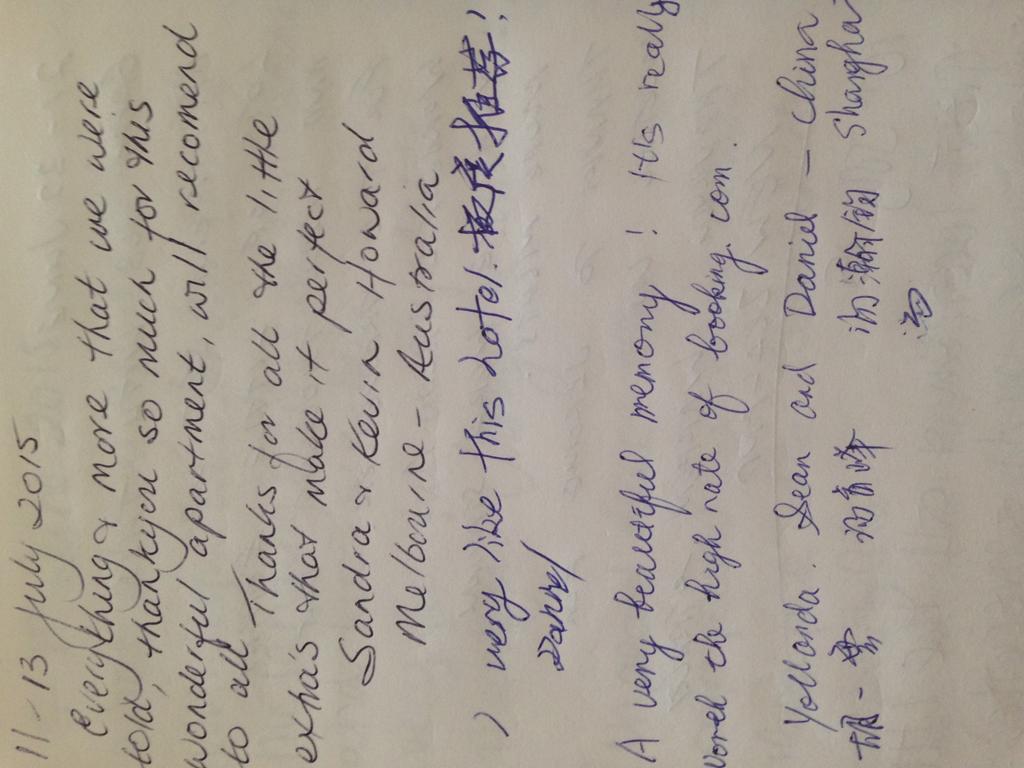 11-13 July 2015
Everything & more that we were
told, thankyou so much for this
wonderful apartment, will recomend
to all Thanks for all the little
extra's that make it perfect
Sandra & Kevin Howard
Melbourne - Australia
very like this hotel. 极度推荐!
A very beautiful memory! It's really
worth the high rate of booking.com.
Yollanda. Sean and Daniel - China
Shanghai